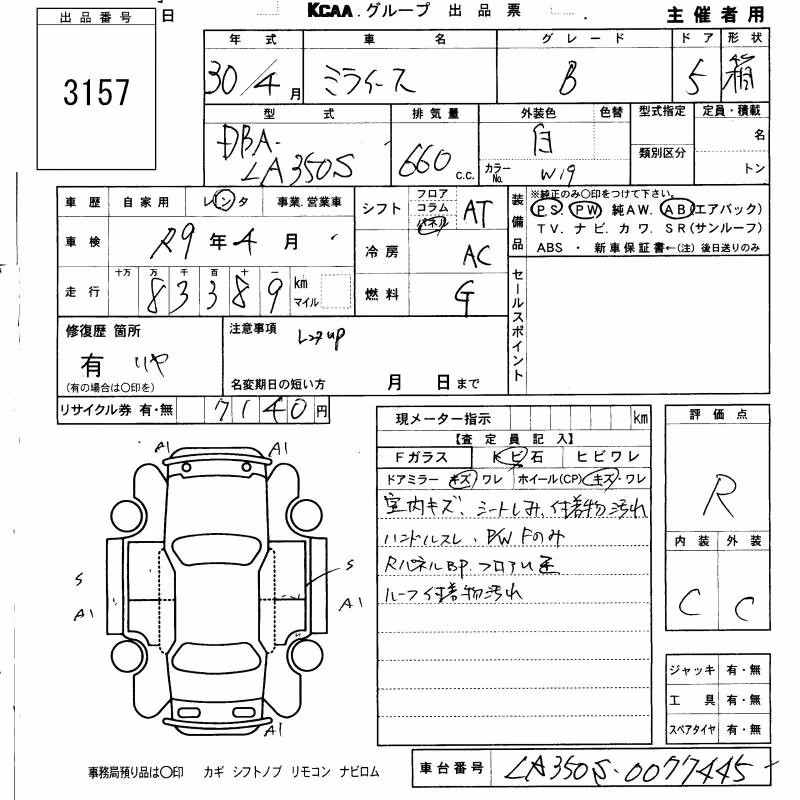 出品番号
日
KCAA.グループ 出品票
主催者用
3157
年式
車名
グレード
ドア
形状
30/4月
ミライース
B
5
箱
型式
排気量
外装色
色替
型式指定
定員・積載
DBA-
LA350S
660 c.c.
白
カラーNo. W19
類別区分
名
トン
車歴 自家用 レンタ 事業.営業車
シフト フロア コラム パネル AT
装備品
※純正のみ〇印をつけて下さい。
PS PW 純AW. AB(エアバック)
TV. ナビ. カワ. SR(サンルーフ)
ABS ・ 新車保証書←(注) 後日送りのみ
車検 R9年4月
冷房 AC
走行 十万 万 千 百 十 一
83389 km マイル
燃料 G
セールスポイント
修復歴 箇所
有 リヤ
(有の場合は〇印を)
注意事項 レンタup
名変期日の短い方 月 日まで
リサイクル券 有・無 7140円
現メーター指示 km
評価点
【査定員記入】
Fガラス トビ石 ヒビワレ
ドアミラー キズ・ワレ ホイール(CP) キズ・ワレ
R
室内キズ、シートしみ、付着物汚れ
ハンドルスレ、PW Fのみ
内装 外装
RパネルBP.フロアU歪
ルーフ付着物汚れ
C C
A1 A1
S S
A1 A1
A1
ジャッキ 有・無
工具 有・無
スペアタイヤ 有・無
事務局預り品は〇印 カギ シフトノブ リモコン ナビロム
車台番号 LA350S-0077445